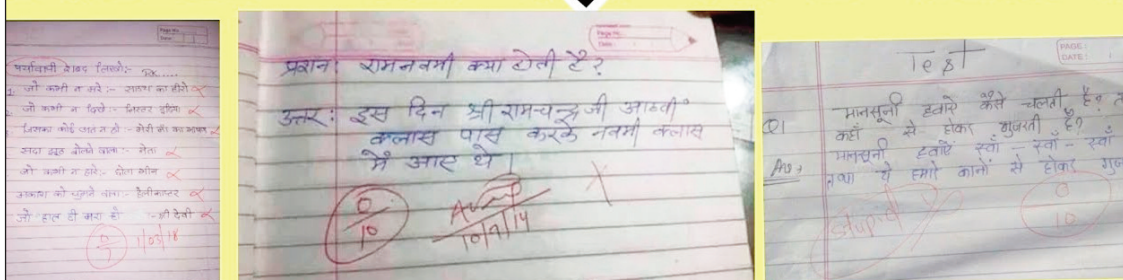 पर्यावाची शब्द लिखो:-
1. जो कभी न मरे :- सलमान का हीरो
जो कभी न दिखे :- मिस्टर इंडिया
जिसका कोई अंत न हो - मोदी जी का भाषण
सदा झूठ बोलने वाला :- नेता
जो कभी न हारे:- छोटा भीम
आकाश को चूमने वाला :- हेलीकाप्टर
जो हाल ही मरा हो :- श्री देवी
0/7 1/03/18
Page No.
Date
प्रशन: रामनवमी क्या होती है?
उत्तर: इस दिन श्री रामचन्द्रजी आठवीं
क्लास पास करके नवमी क्लास
में आए थे।
0/10
10/9/14
PAGE:
DATE:
Test
Q1 मानसूनी हवाऐं कैसे चलती है? त
कहाँ से होकर गुजरती है?
Ans मानसूनी हवाऐं स्वाँ - स्वाँ - स्वाँ
तथा ये हमारे कानों से होकर गुज
Stupid
0/10